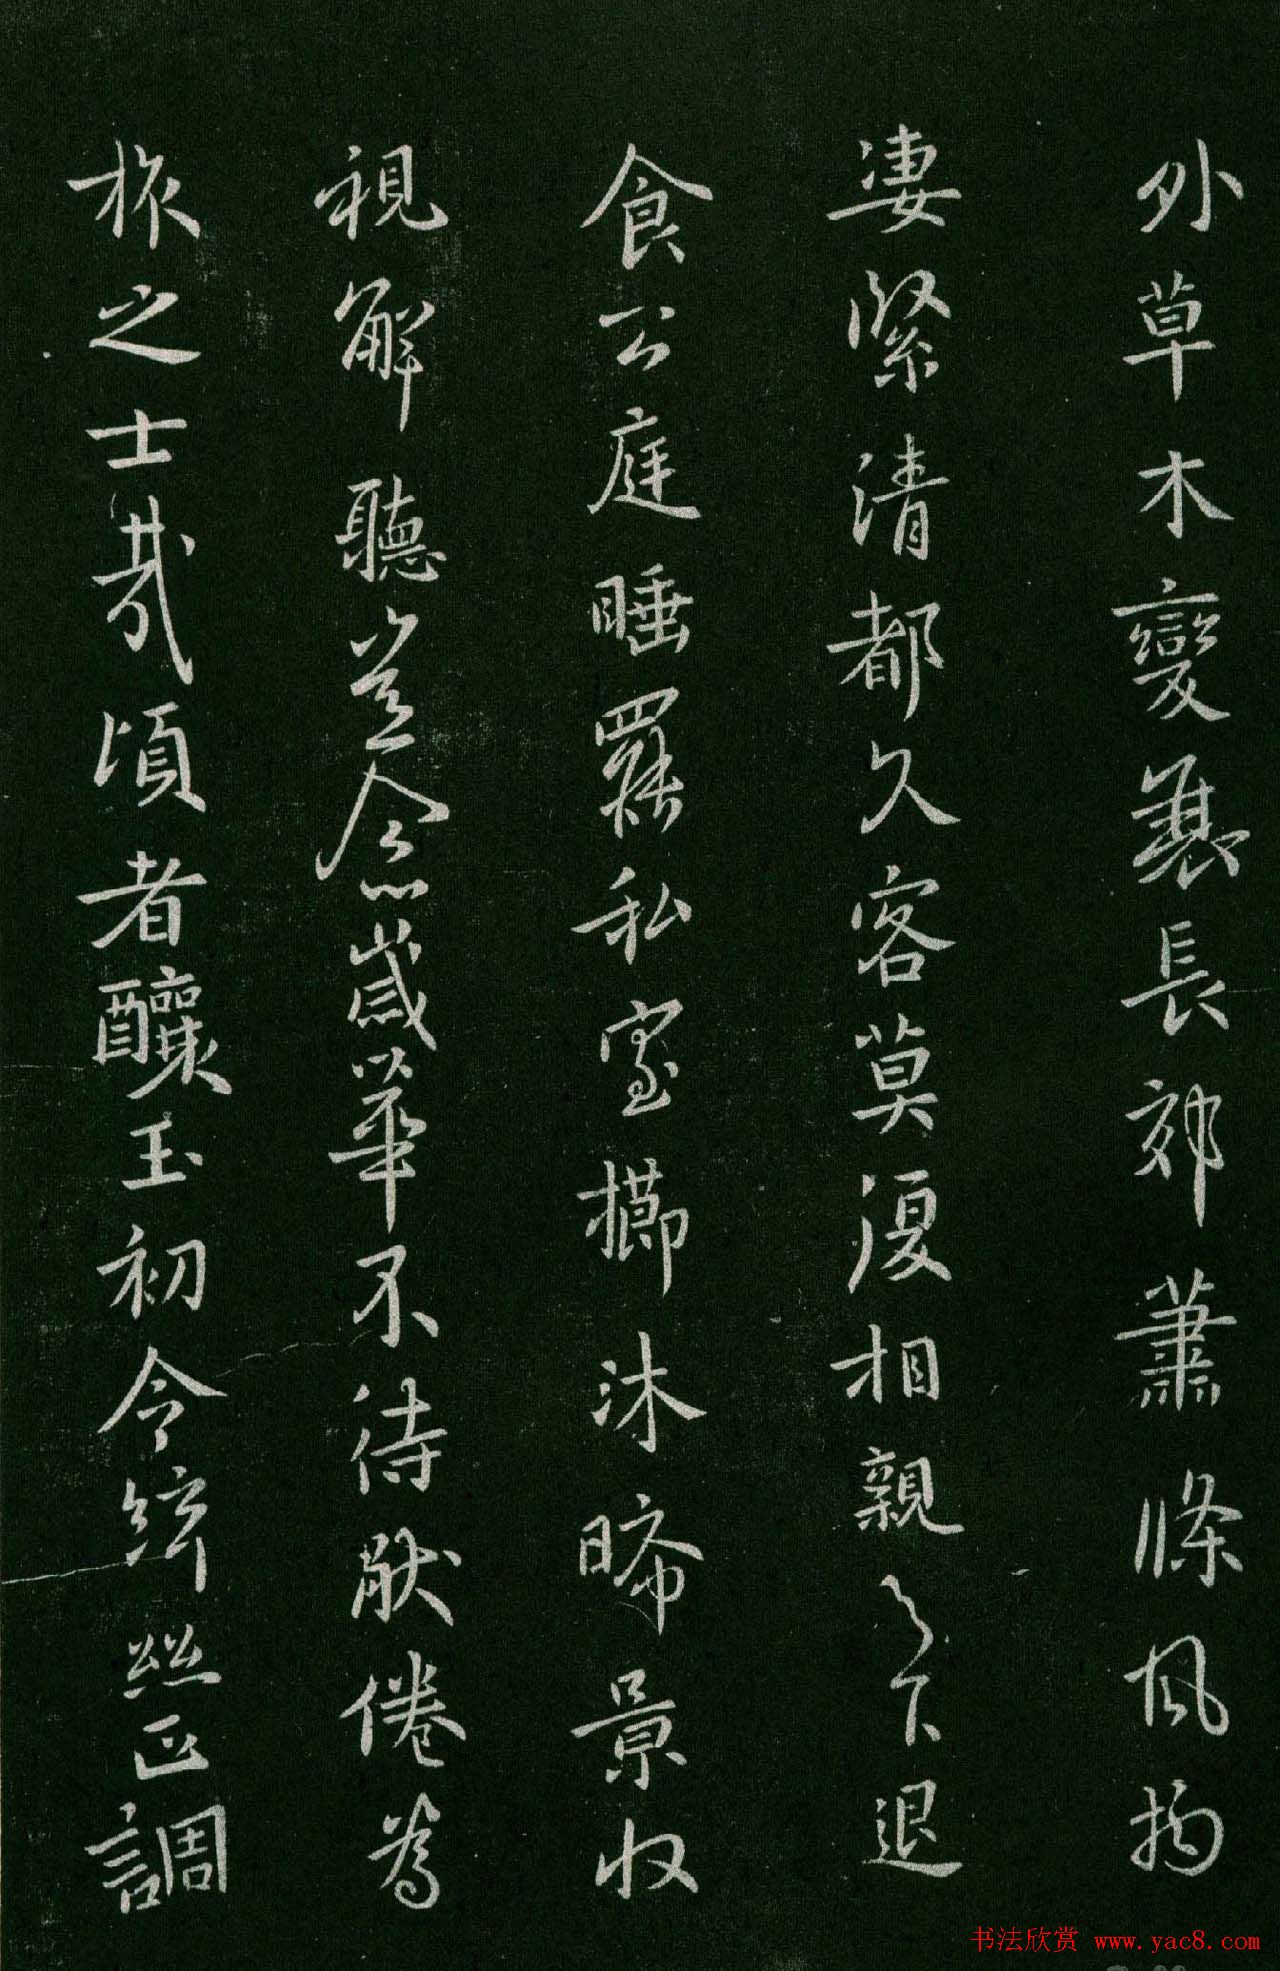 外草木變衰長郊蕭條風物
凄緊清都久客莫復相親足下退
食公庭睡罷私室櫛沐晞景收
視解聽豈念歲華不待猒倦為
旅之士哉頃者釀玉初令絃絲正調
书法欣赏 www.yac8.com